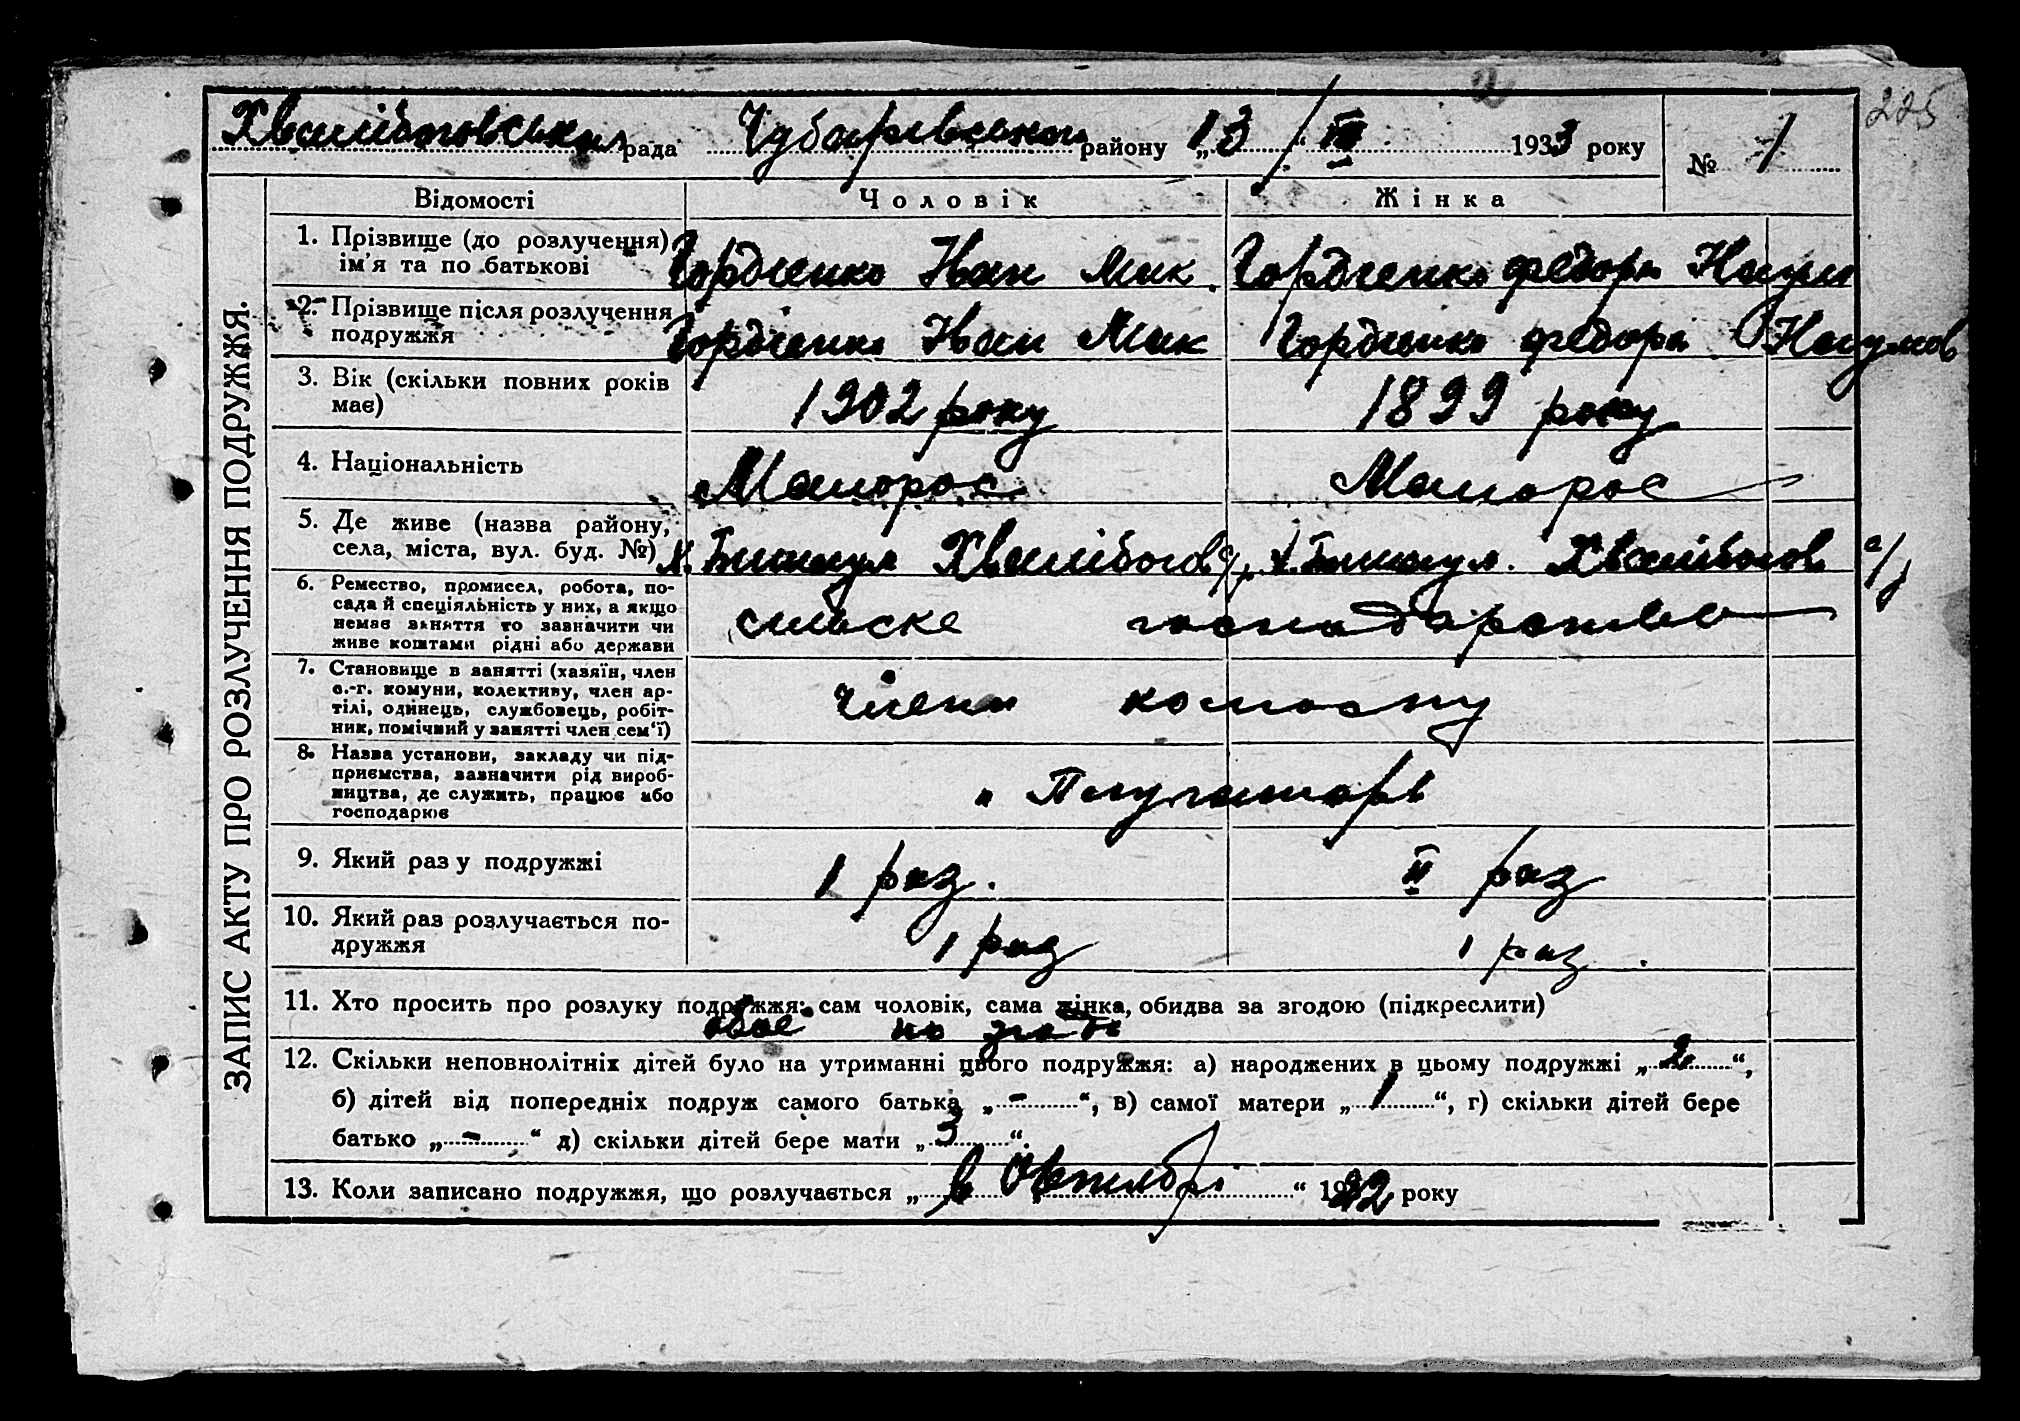 225
рада Чубарівського району „13“ III 1933 року № 1
ЗАПИС АКТУ ПРО РОЗЛУЧЕННЯ ПОДРУЖЖЯ.
Відомості Чоловік Жінка
1. Прізвище (до розлучення) ім'я та по батькові Гордіенко Иван Мик. Гордіенко Федора Наум
2. Прізвище після розлучення подружжя Гордіенко Иван Мик Гордіенко Федора Наумов
3. Вік (скільки повних років має) 1902 року 1899 року
4. Національність Малорос Малорос
5. Де живе (назва району, села, міста, вул. буд. №) Хвалібогов с/р Хвалібогов с/р
6. Ремество, промисел, робота, посада й спеціяльність у них, а якщо немає заняття то зазначити чи живе коштами рідні або держави сильске господарство
7. Становище в занятті (хазяїн, член с.-г. комуни, колективу, член артілі, одинець, службовець, робітник, помічний у занятті член сем'ї) члени колгоспу
8. Назва установи, закладу чи підприємства, зазначити рід виробництва, де служить, працює або господарює
9. Який раз у подружжі 1 раз. II раз
10. Який раз розлучається подружжя 1 раз 1 раз.
11. Хто просить про розлуку подружжя: сам чоловік, сама жінка, обидва за згодою (підкреслити)
обое по згоді
12. Скільки неповнолітніх дітей було на утриманні цього подружжя: а) народжених в цьому подружжі „2“,
б) дітей від попередніх подруж самого батька „-“, в) самої матери „1“, г) скільки дітей бере
батько „-“ д) скільки дітей бере мати „3“.
13. Коли записано подружжя, що розлучається „в Октябрі“ 1922 року